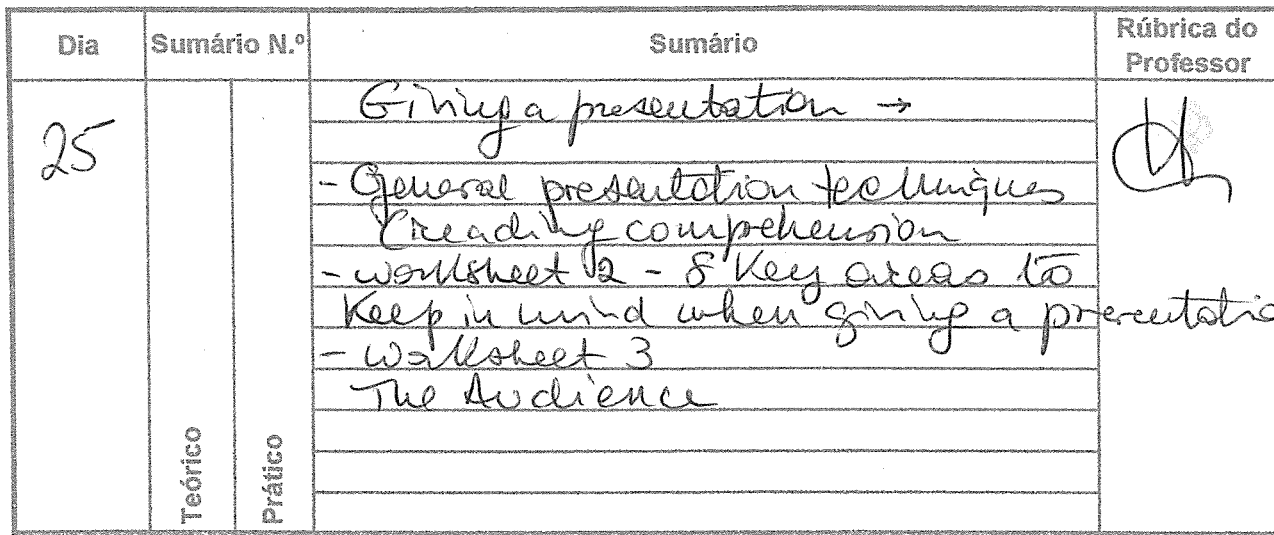 Dia Sumário N.º Sumário Rúbrica do Professor
25
Teórico
Prático
Giving a presentation →
- General presentation techniques
(reading comprehension
- worksheet 2 - 8 Key areas to
Keep in mind when giving a presentatio
- Worksheet 3
The Audience